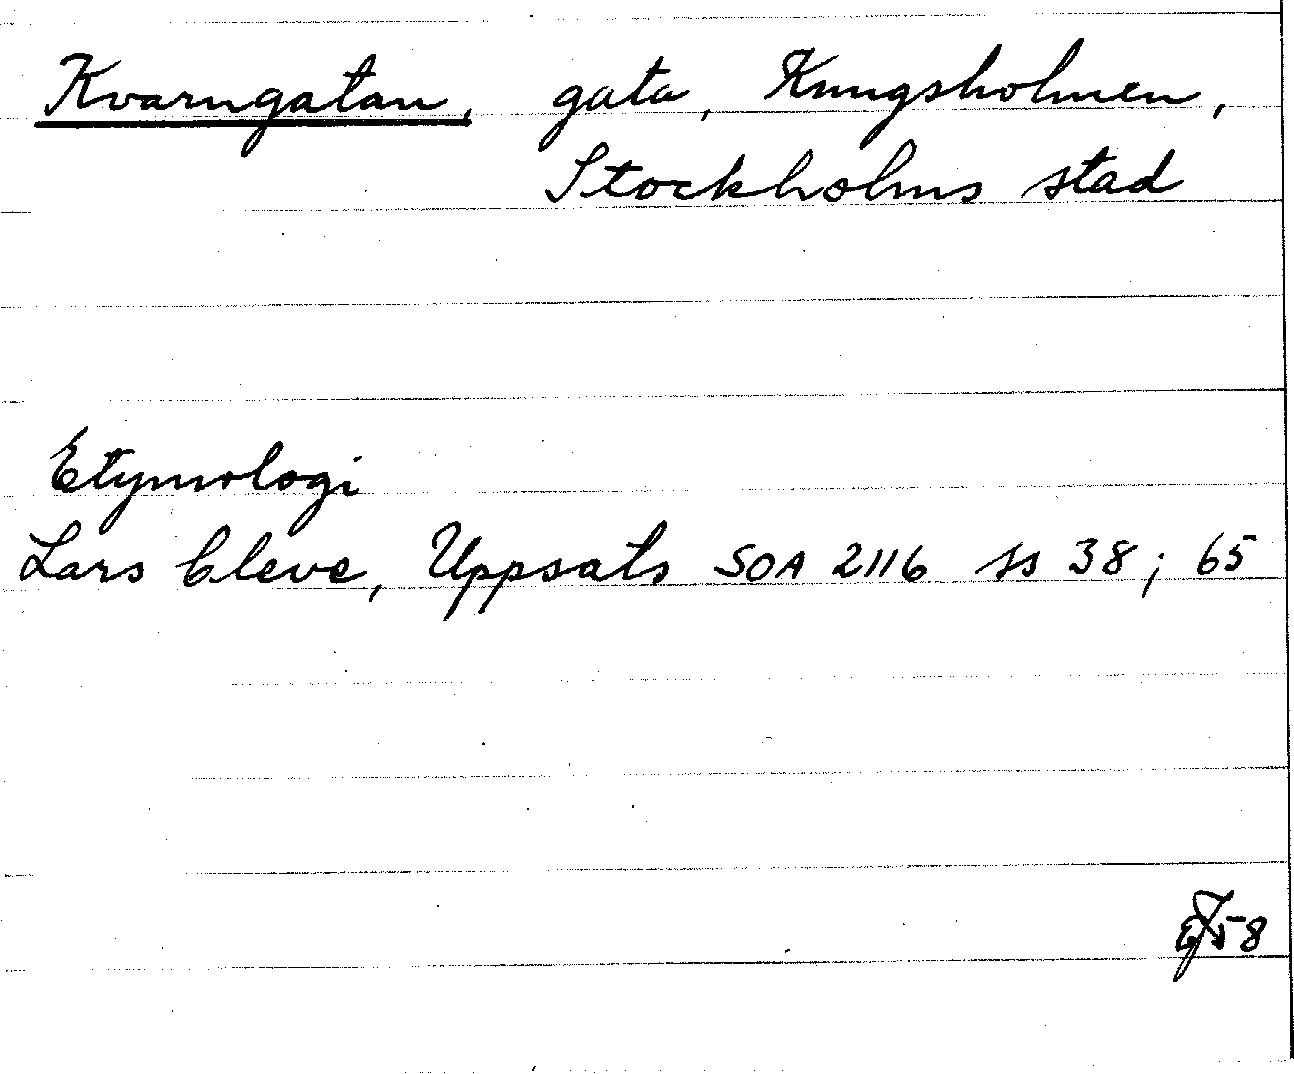 Kvarngatan, gata, Kungsholmen,
Stockholms stad
Etymologi
Lars Cleve, Uppsats SOA 2116 ss 38; 65
58